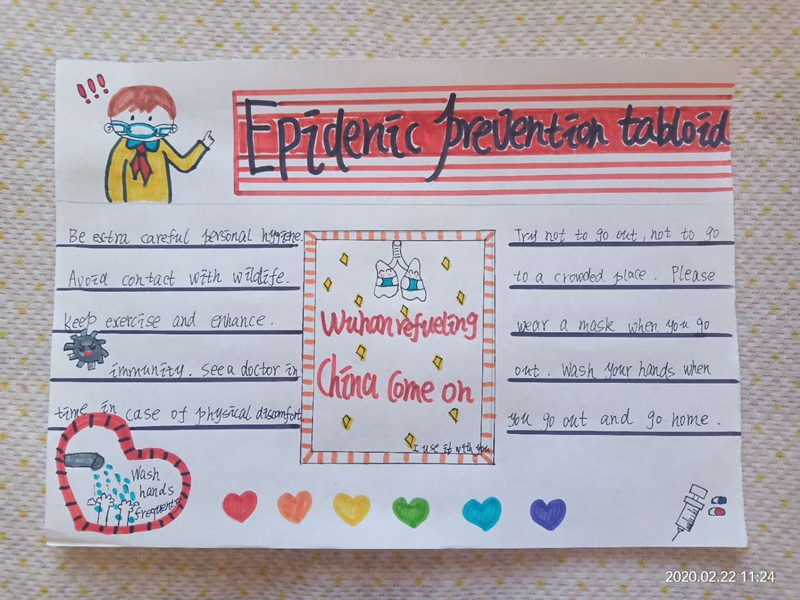 !!!
Epidenic prevention tabloid
Be extra careful personal hygiene.
Avoid contact with wildlife.
keep exercise and enhance.
immunity. See a doctor in
time in case of physical discomfort
Wash
hands
frequent
Wuhan refueling
China Come on
I use it with you
Try not to go out, not to go
to a crowded place. Please
wear a mask when you go
out. Wash your hands when
you go out and go home.
2020.02.22 11:24